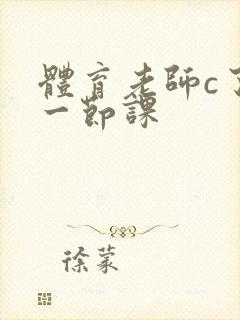 體育老師c了
一節課
徐蒙